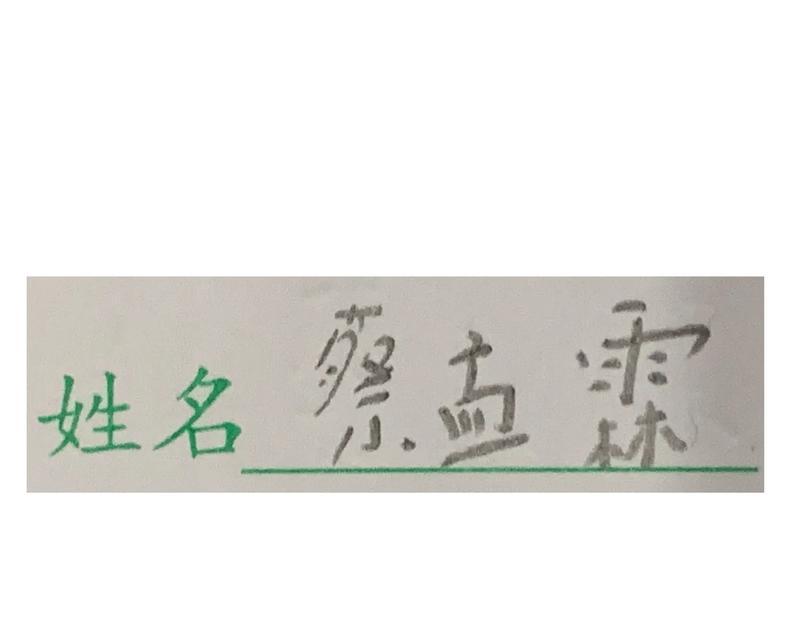 姓名 蔡孟霖